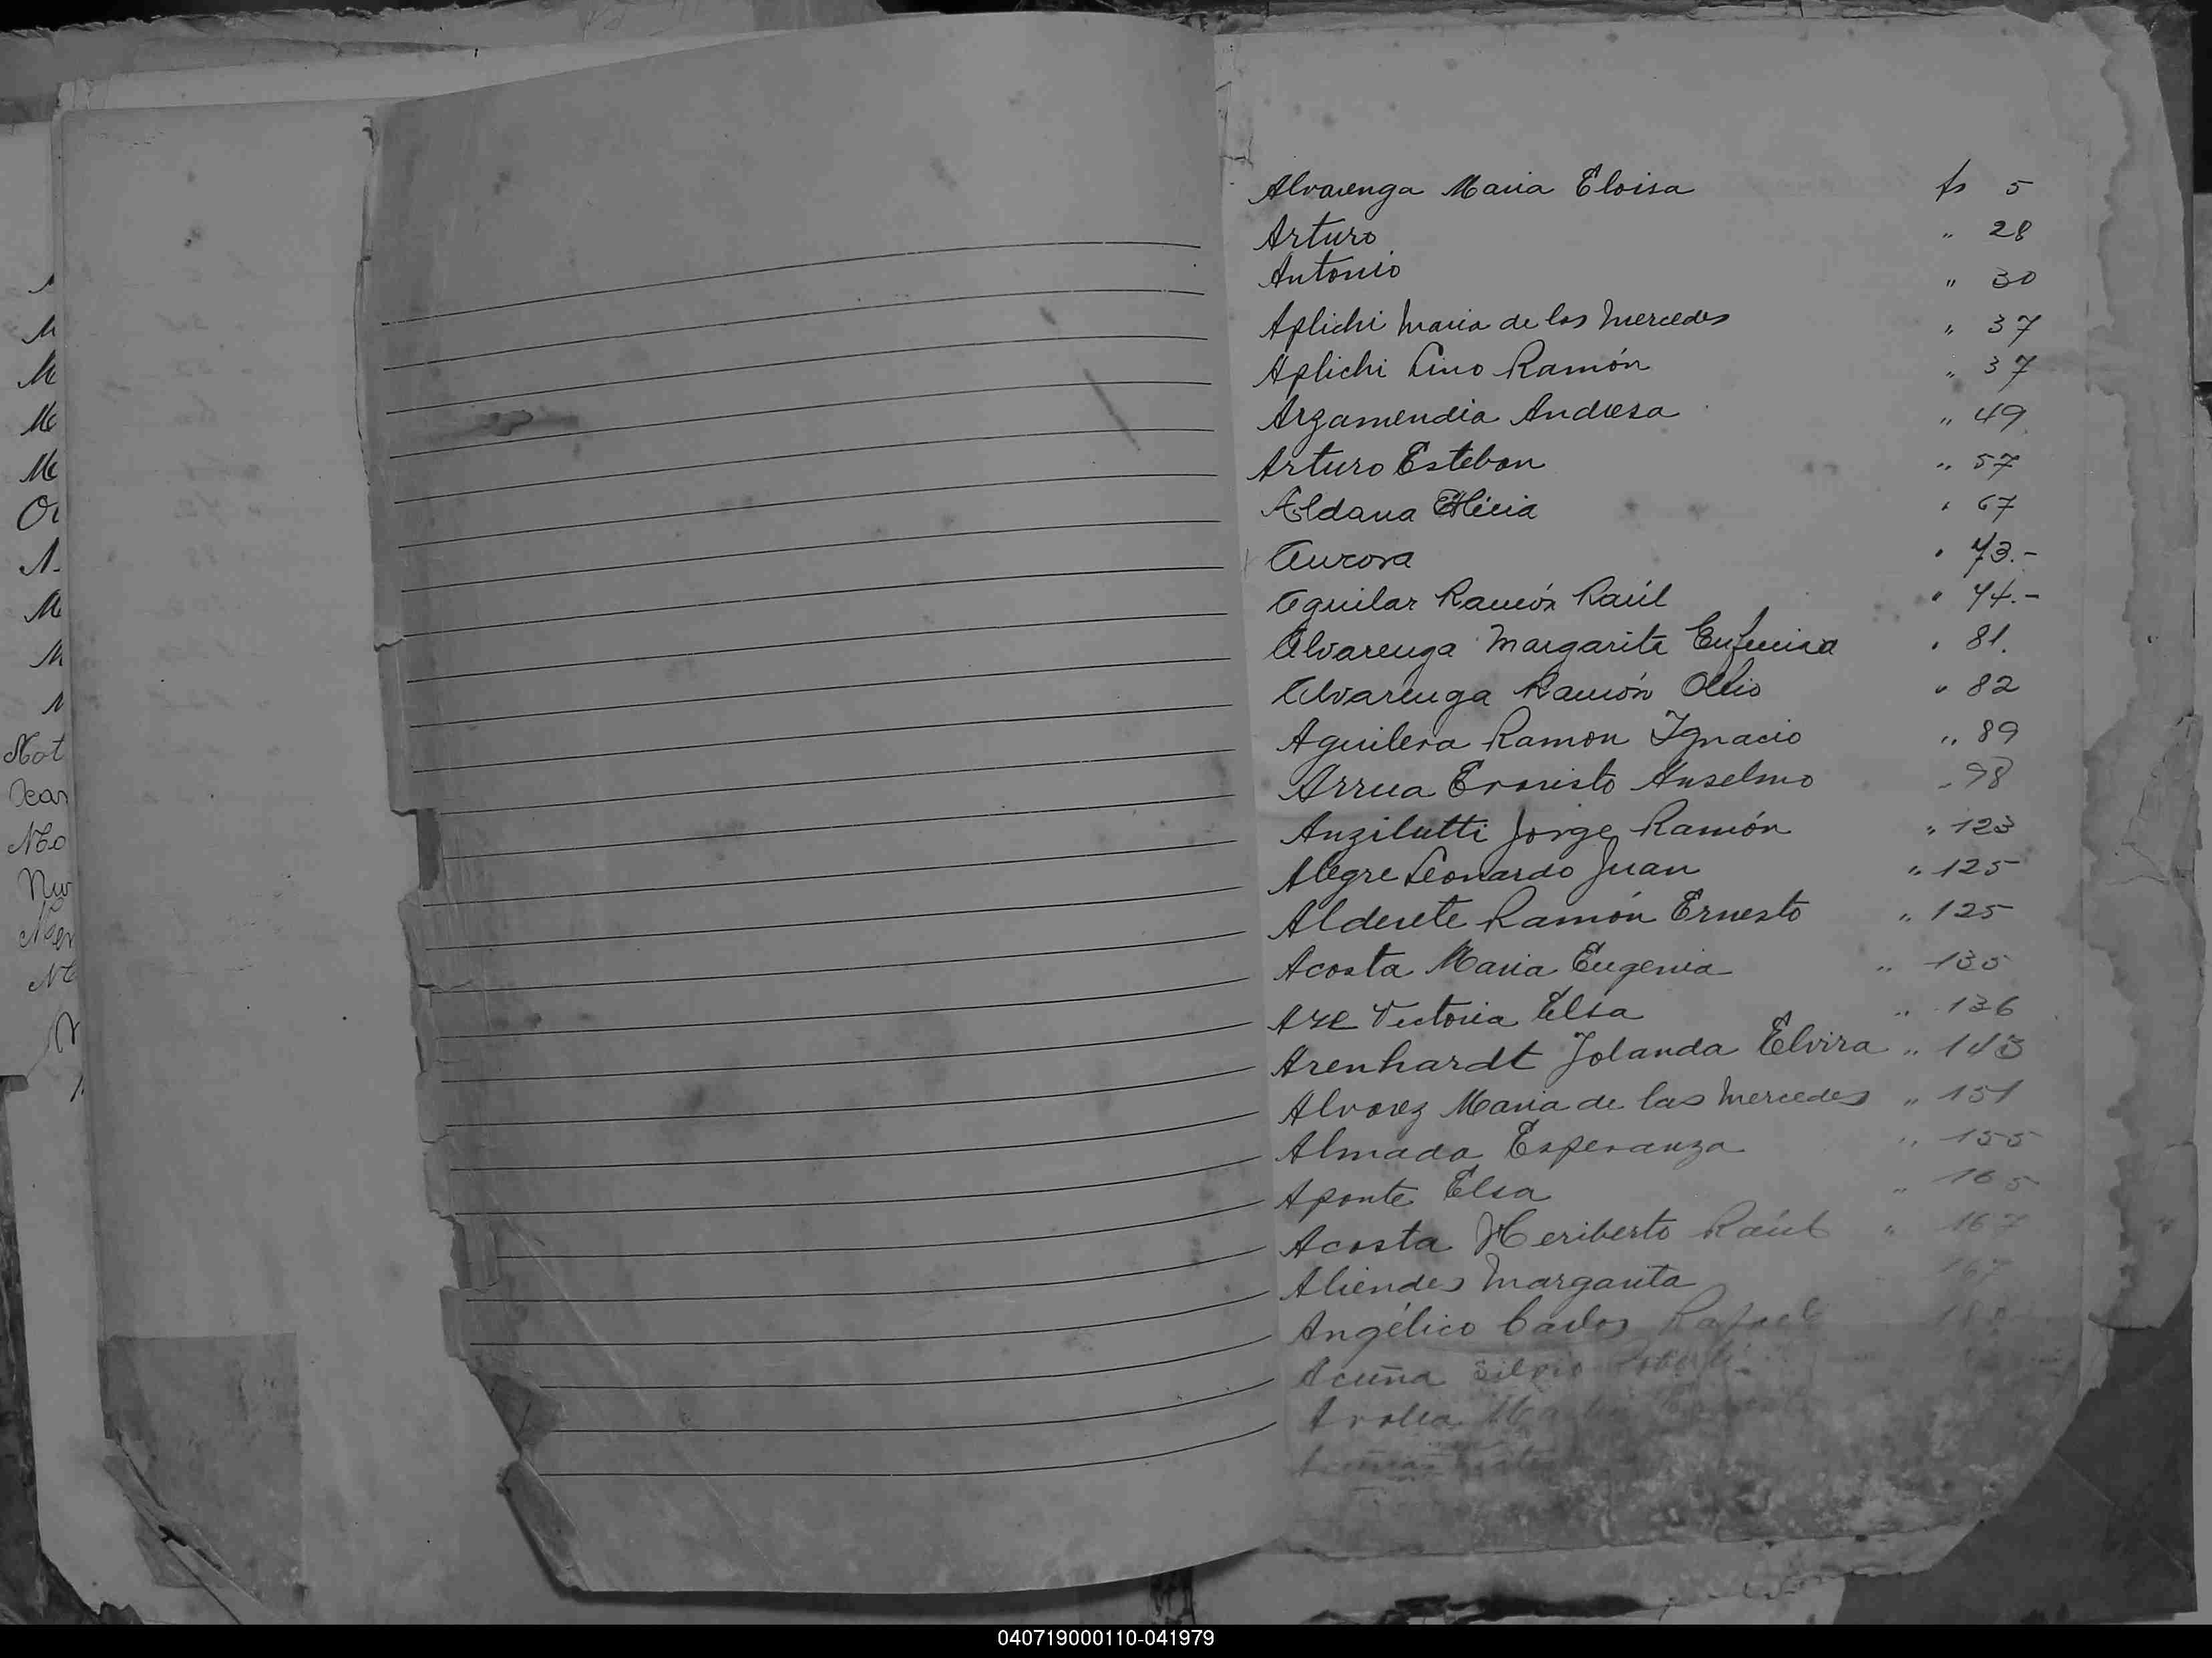 Alvarenga Maria Eloisa fs 5
Arturo " 28
Antonio " 30
Aplichi Maria de las Mercedes " 37
Aplichi Lino Ramón " 37
Argamendia Andresa " 49
Arturo Esteban " 57
Aldana " 67
Aurora " 73.-
Aguilar Ramón Raúl " 74.-
Alvarenga Margarita " 81.
Alvarenga Ramón " 82
Aguilera Ramon Ignacio " 89
Arrua Evaristo Anselmo - 98
Anzilutti Jorge Ramón " 123
Alegre Leonardo Juan " 125
Alderete Ramón Ernesto " 125
Acosta Maria Eugenia " 135
Victoria Elsa " 136
Arenhardt Jolanda Elvira " 143
Alvarez Maria de las Mercedes " 151
Almada Esperanza " 155
Aponte Elsa " 165
Acosta Heriberto Raúl " 167
Aliendes Margarita 167
Angélico Carlos Rafael
Acuña Silvio
M
M
M
M
M
Not
No
040719000110-041979